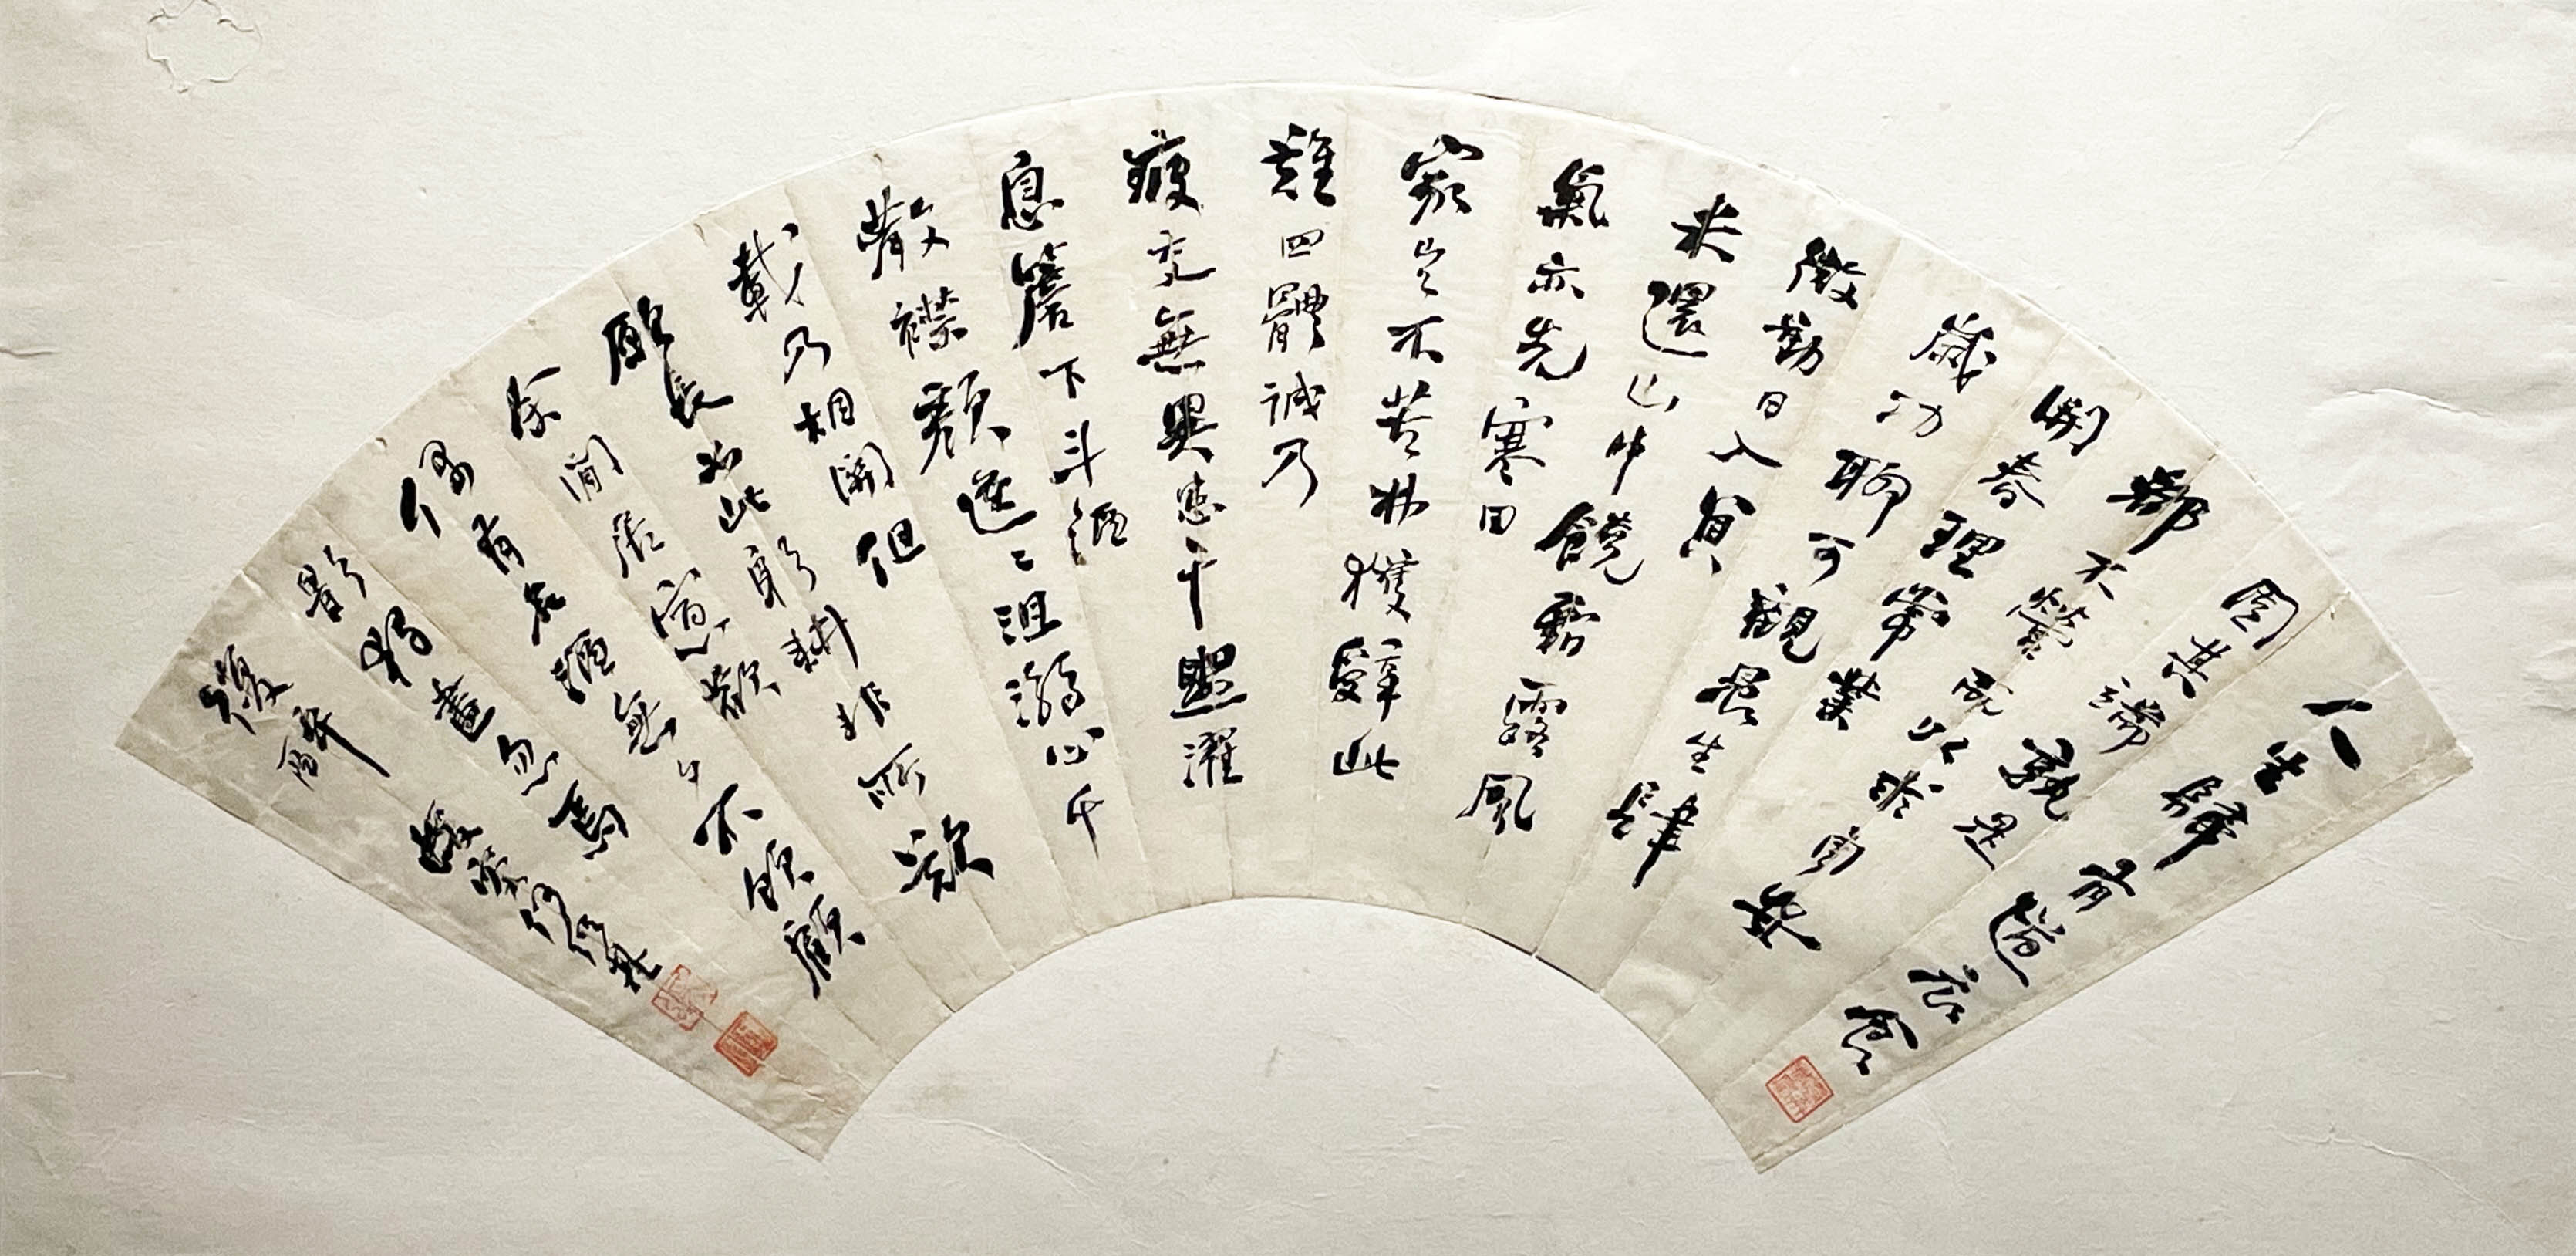 人生歸有道衣食
固其端孰是
都不營而以求自安
開春理常業
歲功聊可觀晨出肆
微勤日入負
耒還山中饒霜露風
氣亦先寒田
家豈不苦弗獲辭此
難四體誠乃
疲庶無異患干盥濯
息簷下斗酒
散襟顏遙〻沮溺心千
載乃相關但
願長如此躬耕非所歎
余閒居寡歡
偶有名酒無夕不飲顧
影獨盡忽焉
復醉